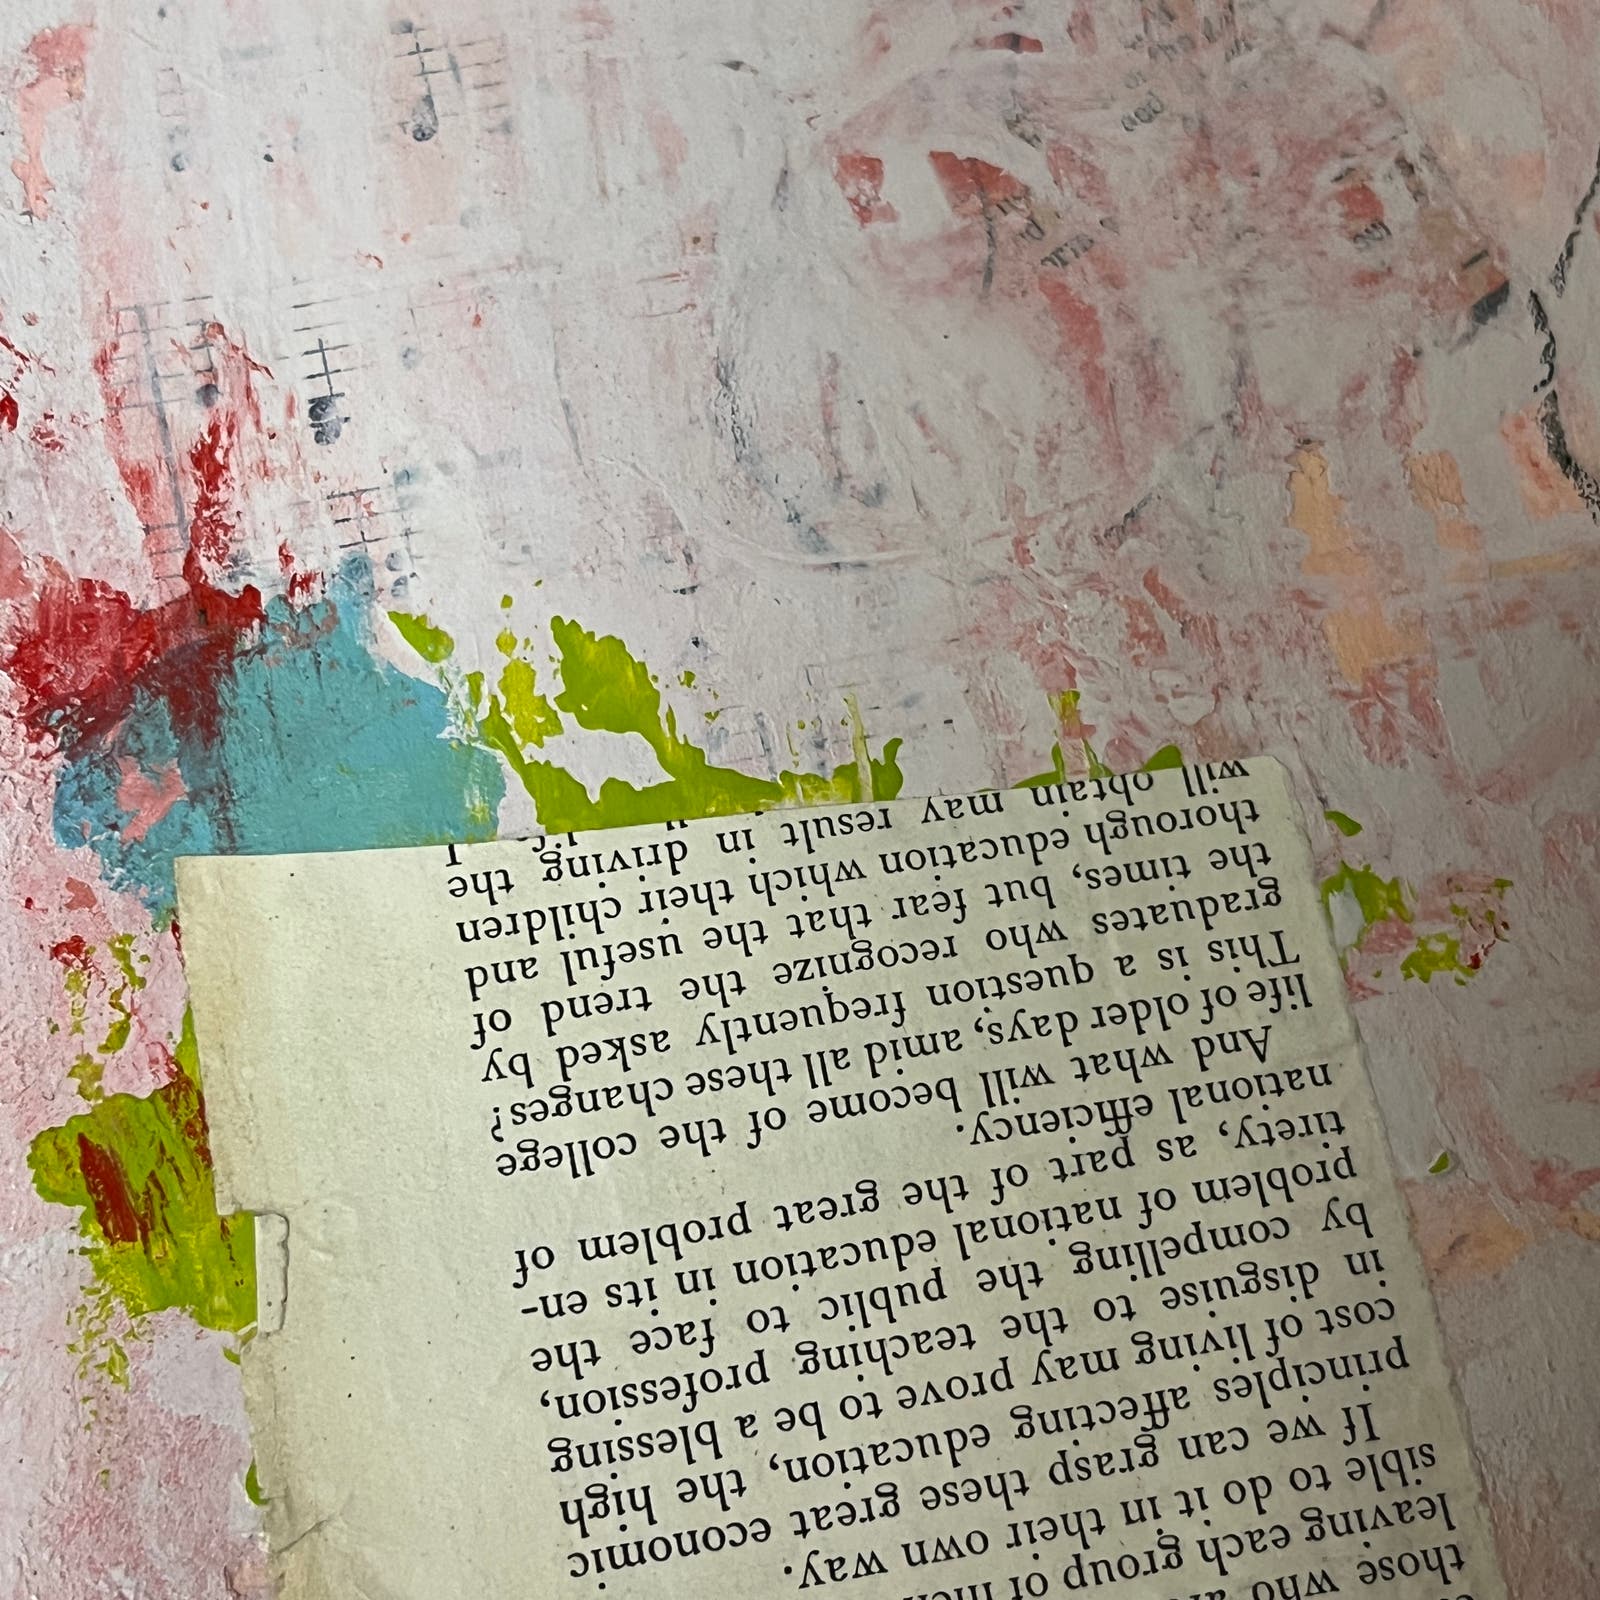 those who
leaving each group of
sible to do it in their own way.
If we can grasp these great economic
principles affecting education, the high
cost of living may prove to be a blessing
in disguise to the teaching profession,
by compelling the public to face the
problem of national education in its en-
tirety, as part of the great problem of
national efficiency.
And what will become of the college
life of older days, amid all these changes?
This is a question frequently asked by
graduates who recognize the trend of
the times, but fear that the useful and
thorough education which their children
will obtain may result in driving the